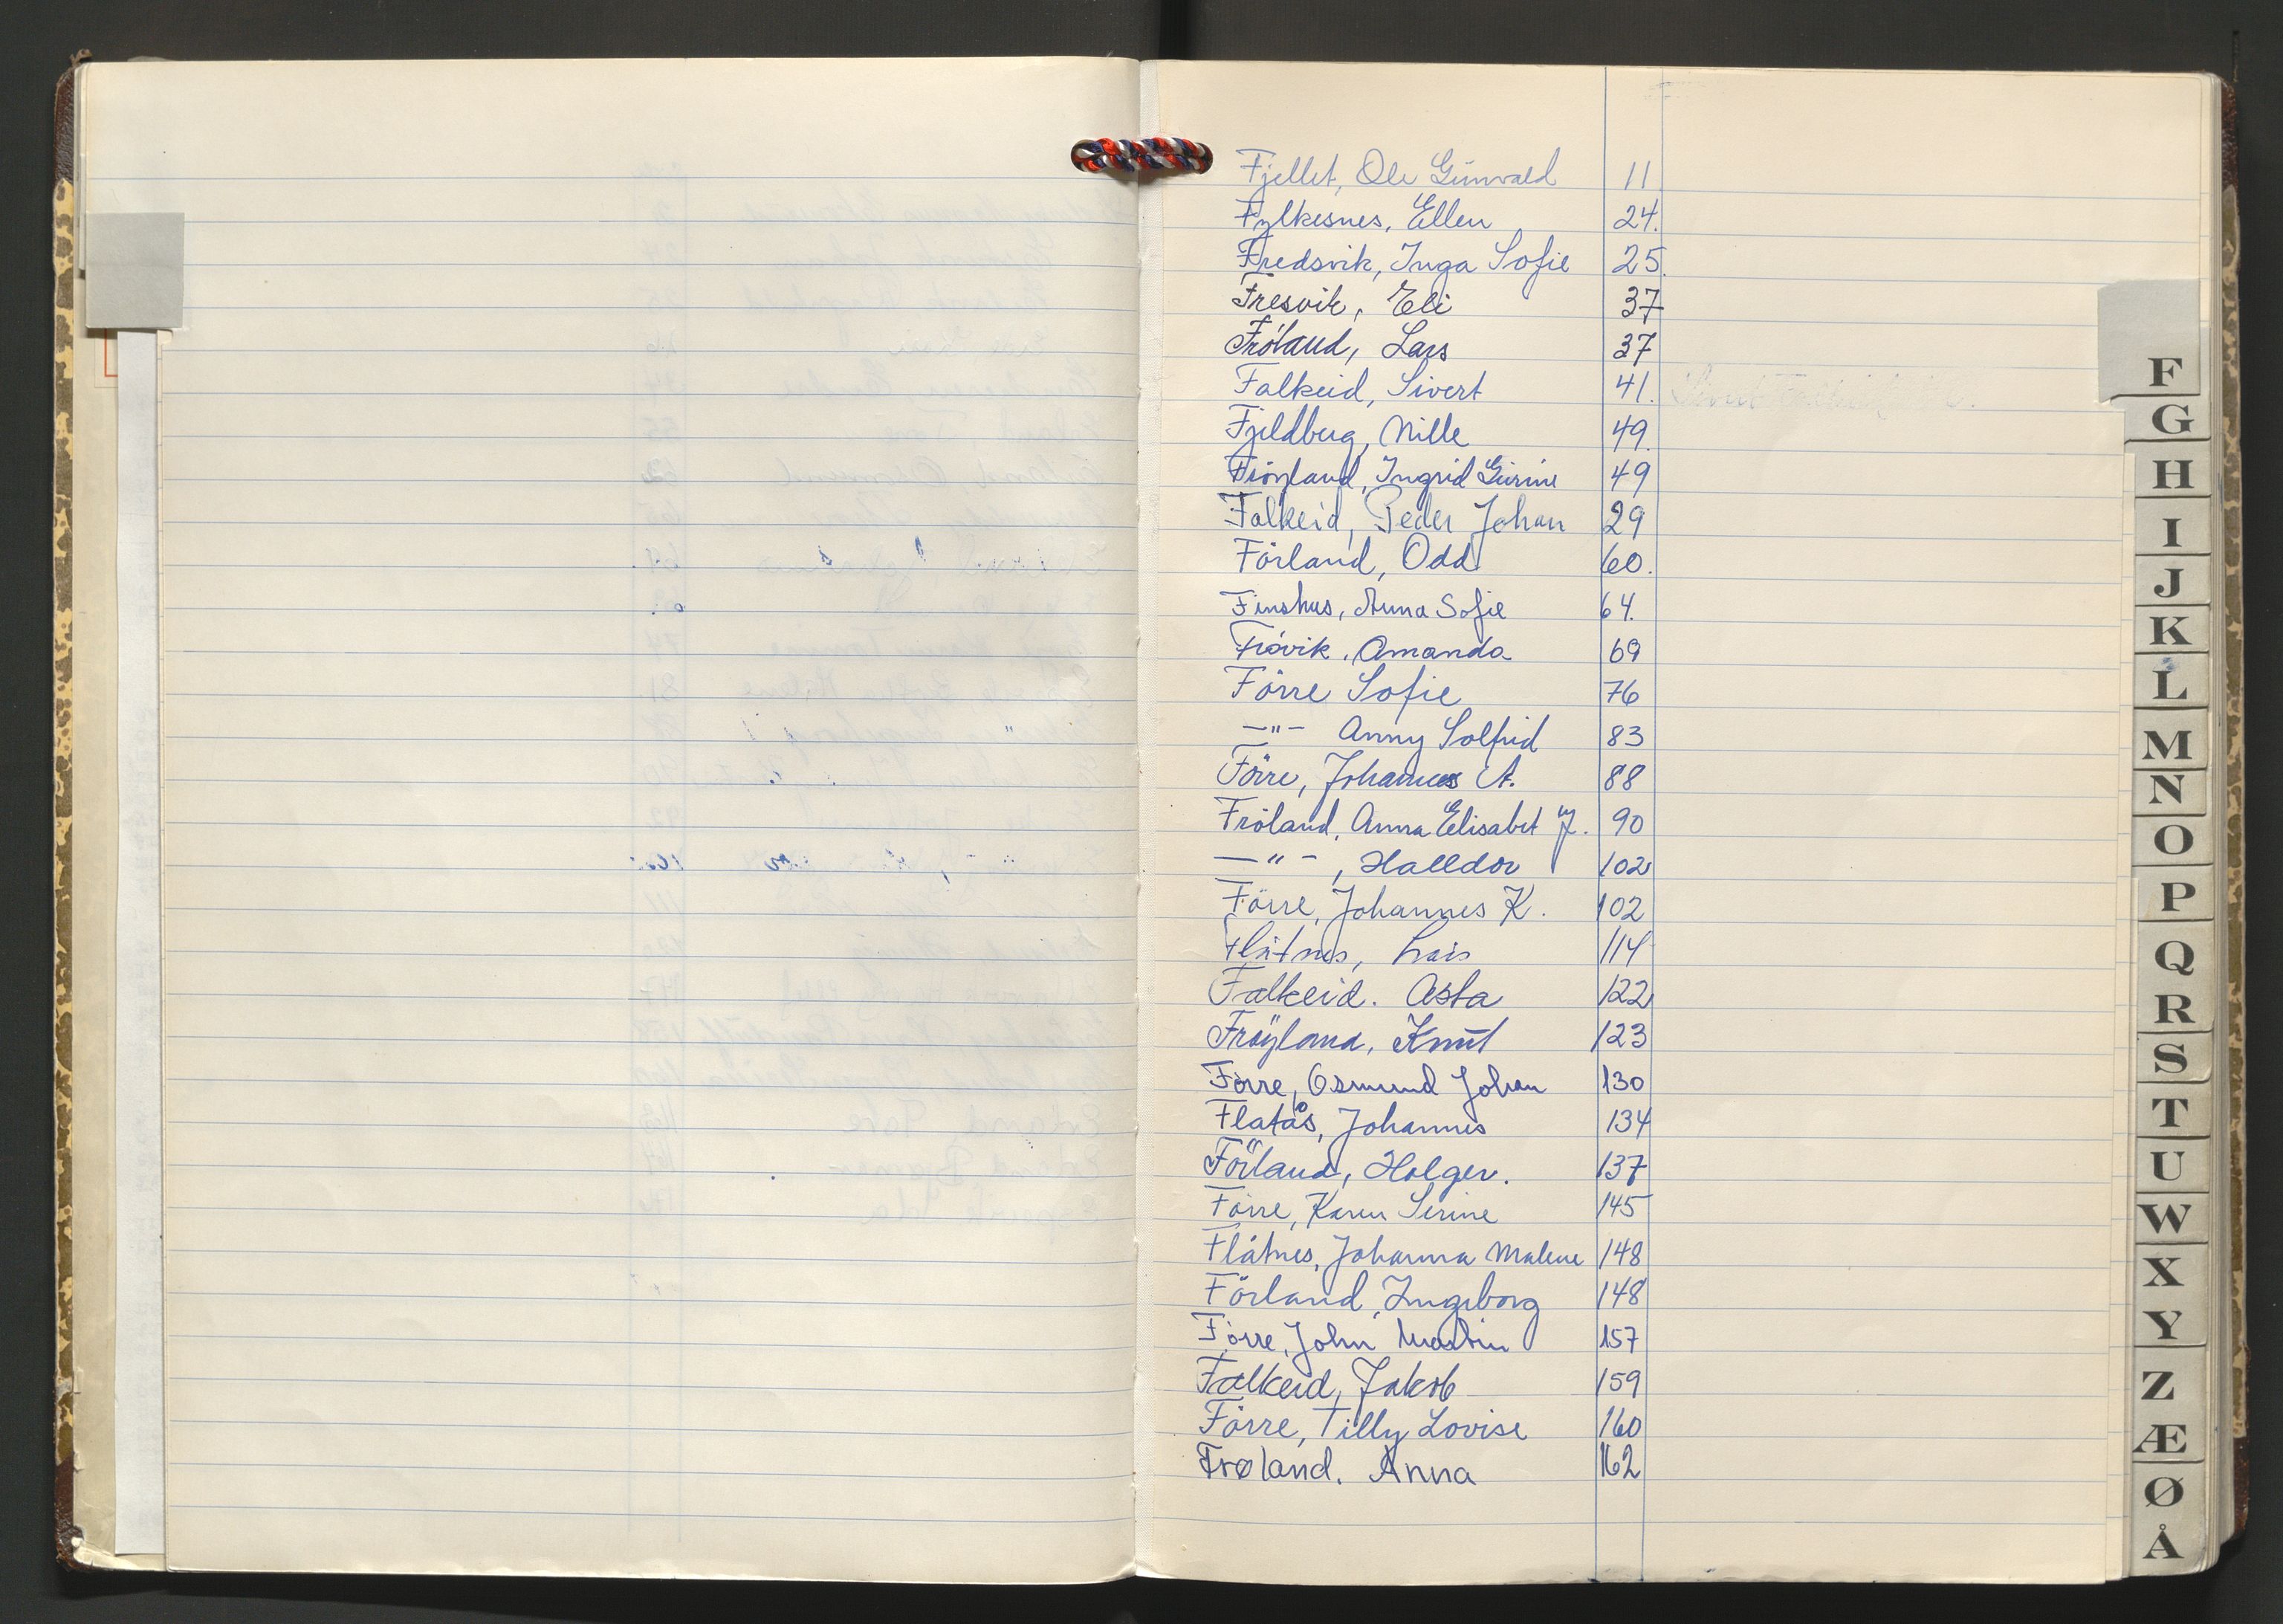 Fjellet, Ole Gunvald 11
Fylkesnes, Ellen 24.
Fredsvik, Inga Sofie 25.
Fresvik, Eli 37
Fröland, Lars 37
Falkeid, Sivert 41.
Fjeldberg, Nille 49.
Fröyland, Ingrid Gurine 49
Falkeid, Peder Johan 29
Förland, Odd 60.
Finshus, Anna Sofie 64.
Frövik, Amanda 69
Förre Sofie 76
—"— Anny Solfrid 83
Förre, Johannes A. 88
Fröland, Anna Elisabet J. 90
—"—, Halldor 102
Förre, Johannes K. 102
Flátnes, Lars 114
Falkeid. Asta 122
Fröyland, Knut 123
Förre, Osmund Johan 130
Flatås, Johannes 134
Förland, Holger. 137
Förre, Karen Serine 145
Flátnes, Johanna Malene 148
Förland, Ingeborg 148
Förre, John Martin 157
Falkeid, Jakob 159
Förre, Tilly Lovise 160
Frøland. Anna 162
F
G
H
I
J
K
L
M
N
O
P
Q
R
S
T
U
W
X
Y
Z
Æ
Ø
Å